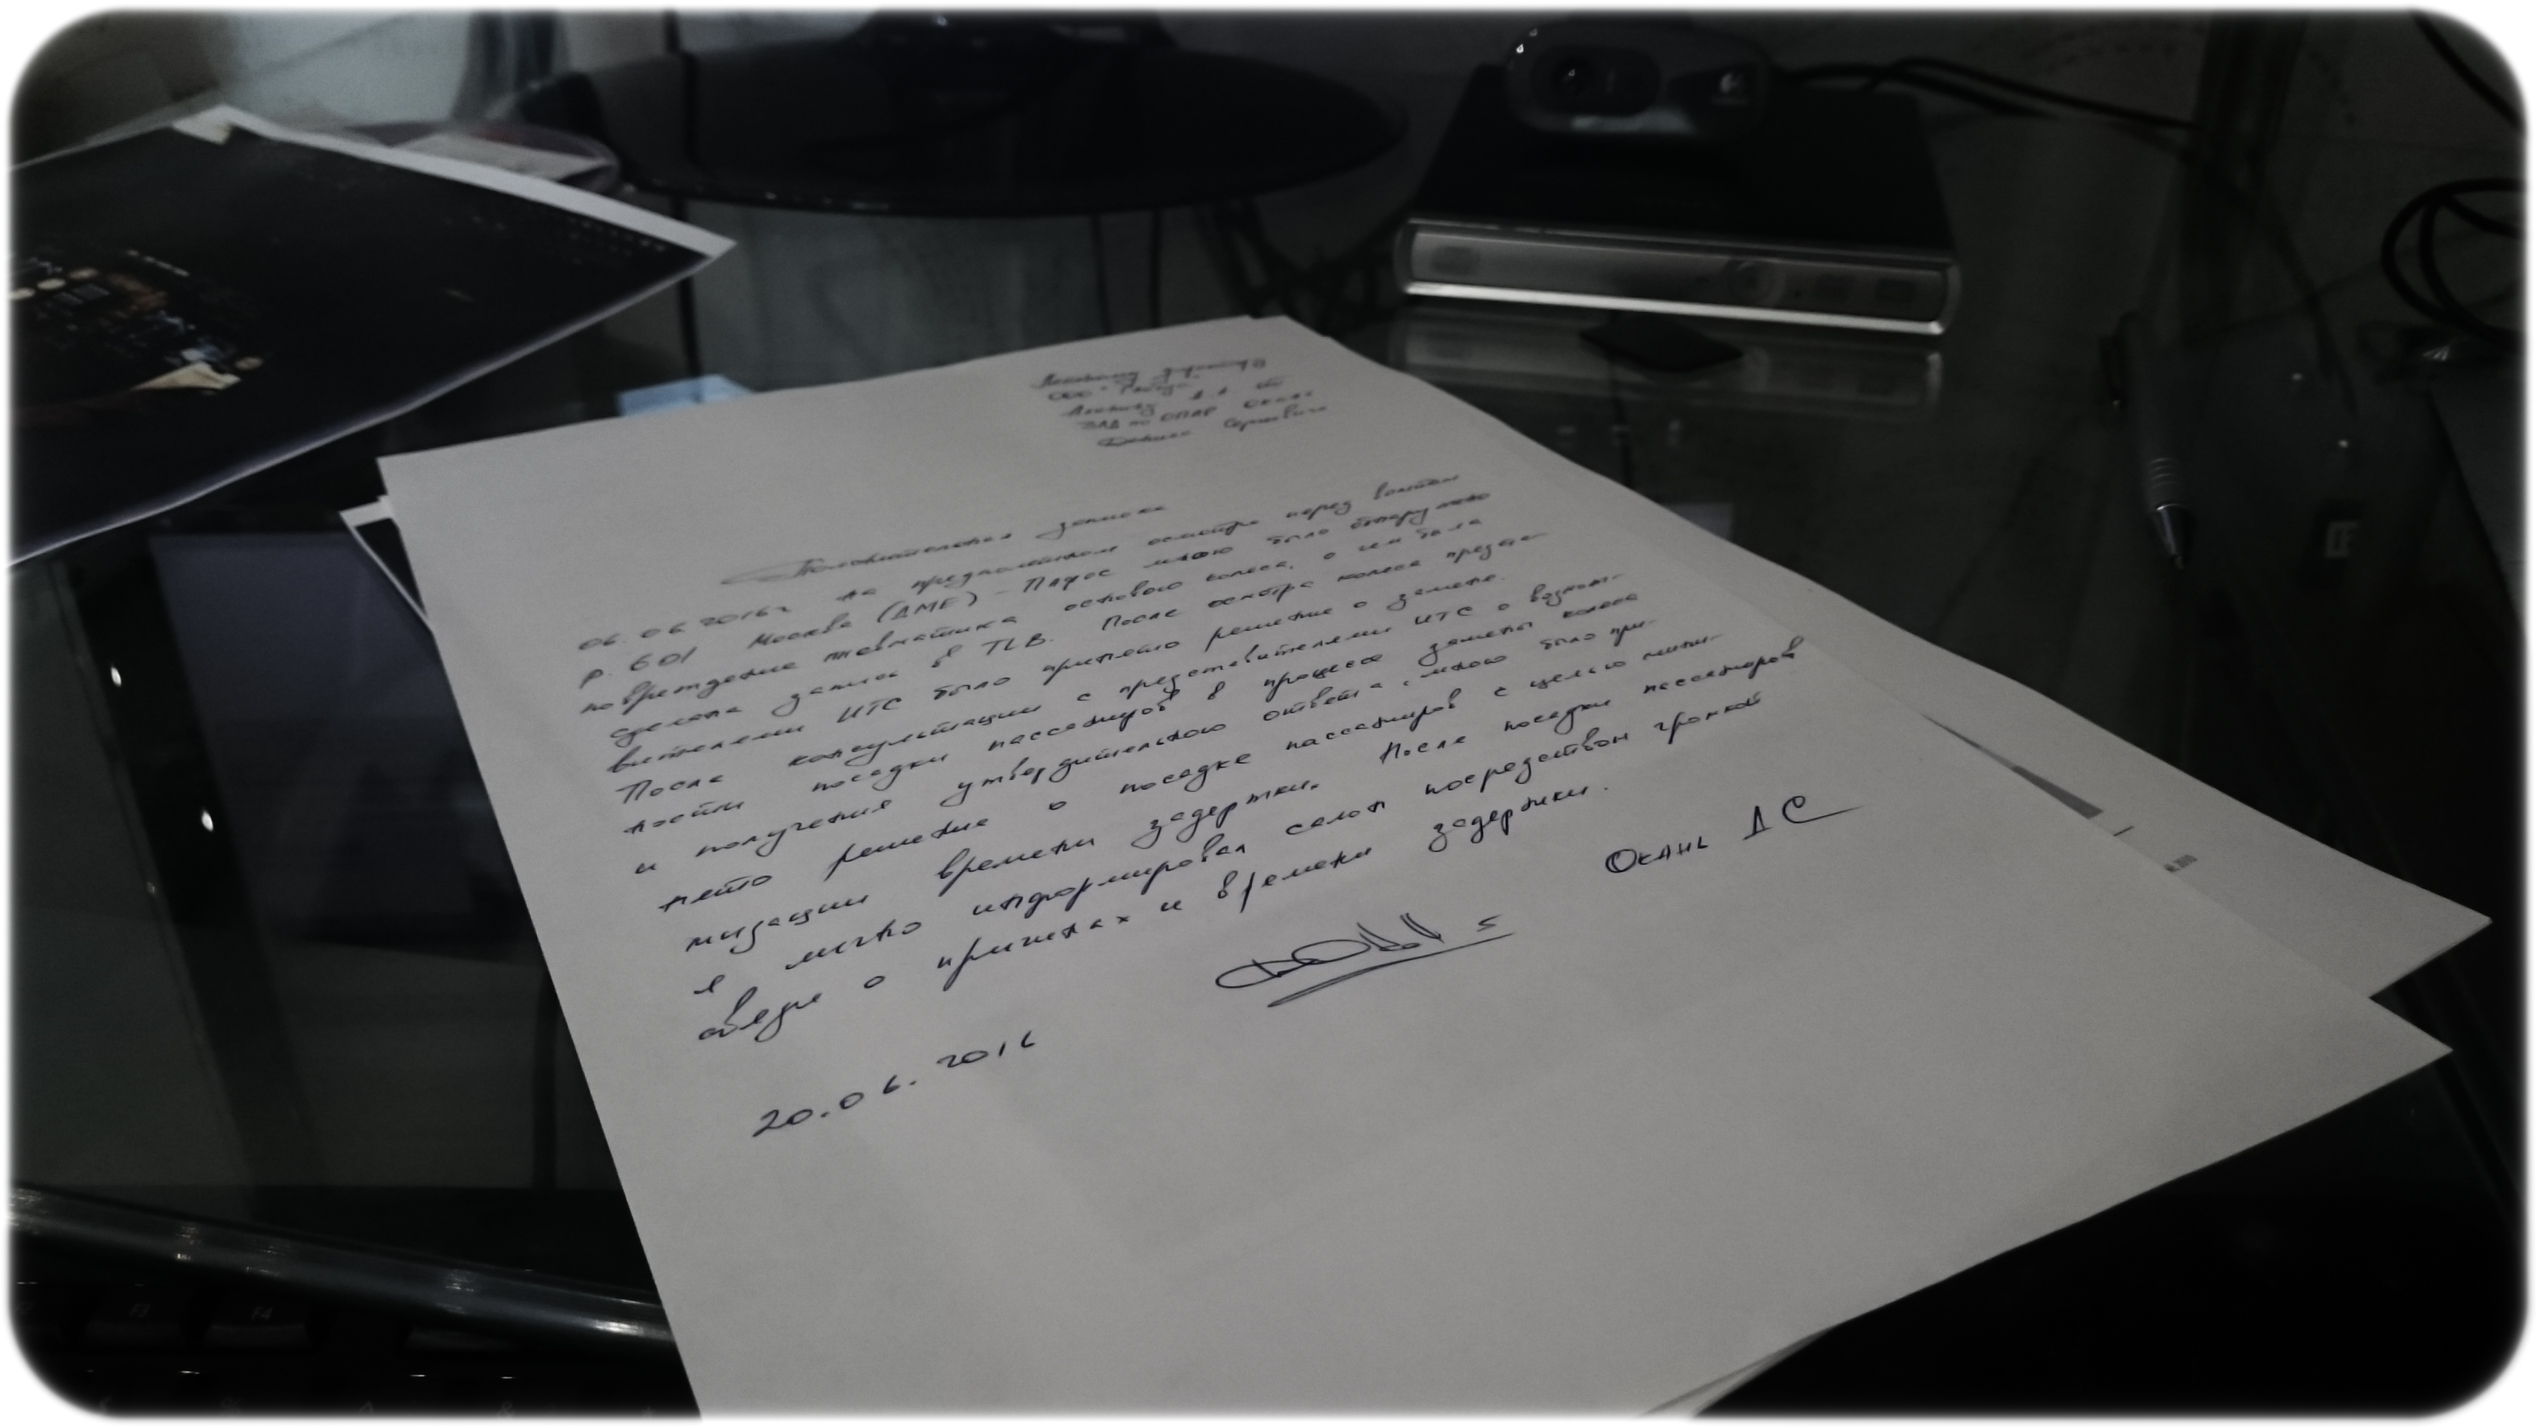 директору
ООО
Д.А. от
по ОПЛР Окань
Дениса Сергеевича
Пояснительная записка
06.06.2016г на предполётном осмотре перед вылетом
р. 601 Москва (ДМЕ) - Пафос мною было обнаружено
повреждение пневматика основого колеса, о чем была
сделана запись в TLB. После осмотра колеса предста-
вителями ИТС было принято решение о замене.
После консультации с представителями ИТС о возмож-
ности посадки пассажиров в процессе замены колеса
и получения утвердительного ответа, мною было при-
нято решение о посадке пассажиров с целью мини-
мизации времени задержки. После посадки пассажиров
я лично информировал салон посредством громкой
связи о причинах и времени задержки.
Окань ДС
20.06.2016
F3
F4